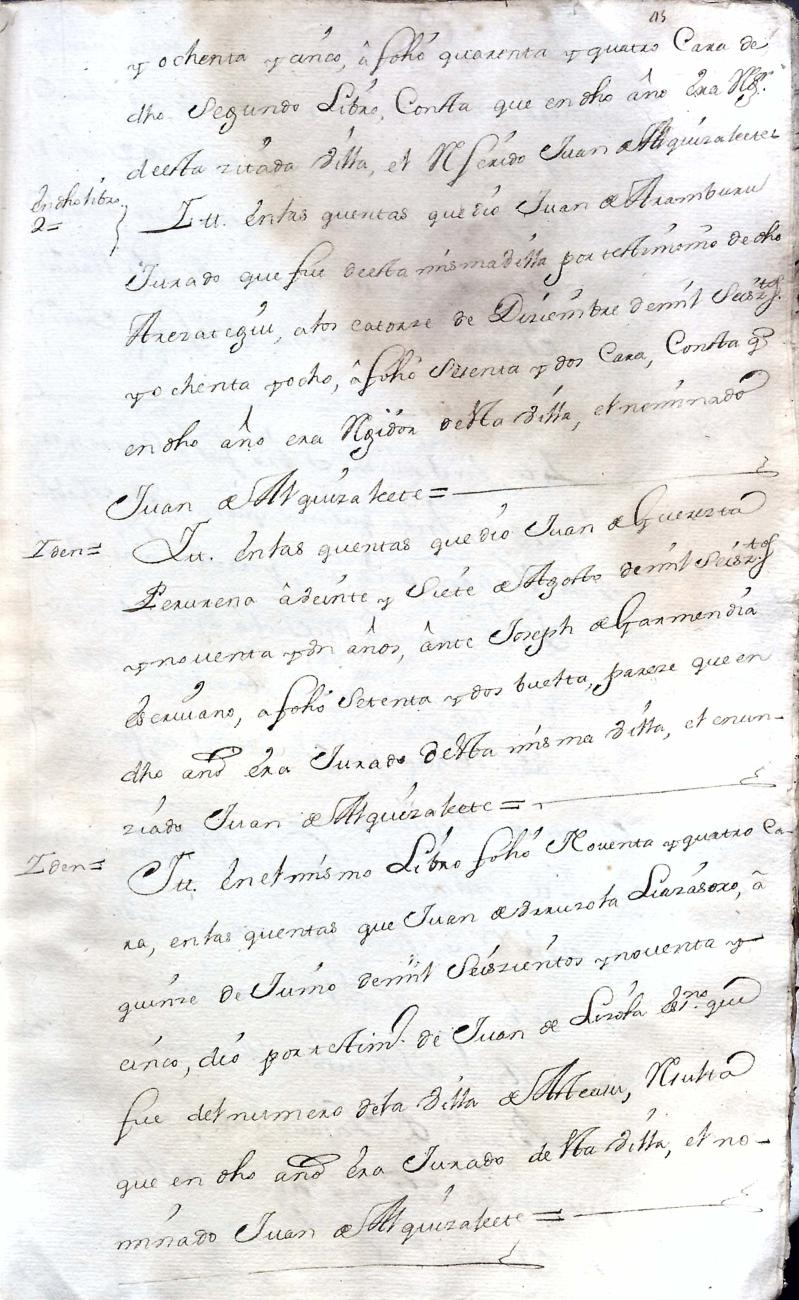 113
y ochenta y cinco, â folio quarenta y quatro Cara de
dho Segundo Libro, Consta que en dho año era Rexr.
de esta zitada Villa, el Referido Juan de Alquizalete
En dho libro
2=
Itt. en las quentas que dió Juan de Aramburu
Jurado que fue de esta misma Villa por testimonio de dho
Arezategui, a los catorze de Diziembre de mil Seiszts.
y ochenta y ocho, â folio Setenta y dos Cara, Consta q̃
en dho año era Regidor de esta Villa, el nominado
Juan de Alquizalete =
Iden=
Itt. en las quentas que dió Juan de Guerezta
Perurena â veinte y Siete de Agosto de mil Seiszts
y noventa y un años, ânte Joseph de Garmendia
Escrivano, a folio Setenta y dos buelta, pareze que en
dho año era Jurado de esta misma Villa, el enun-
ziado Juan de Alquizalete =
Iden=
Itt. en el mismo Libro folio Noventa y quatro Ca-
ra, en las quentas que Juan de Urruzola Liazasoro, â
quinze de Junio de mil Seiszientos y noventa y
cinco, dió por testimo. de Juan de Lizola Esno. que
fue del numero de la Villa de Ateaun, Resulta
que en dho año era Jurado de esta Villa, el no-
minado Juan de Alquizalete =